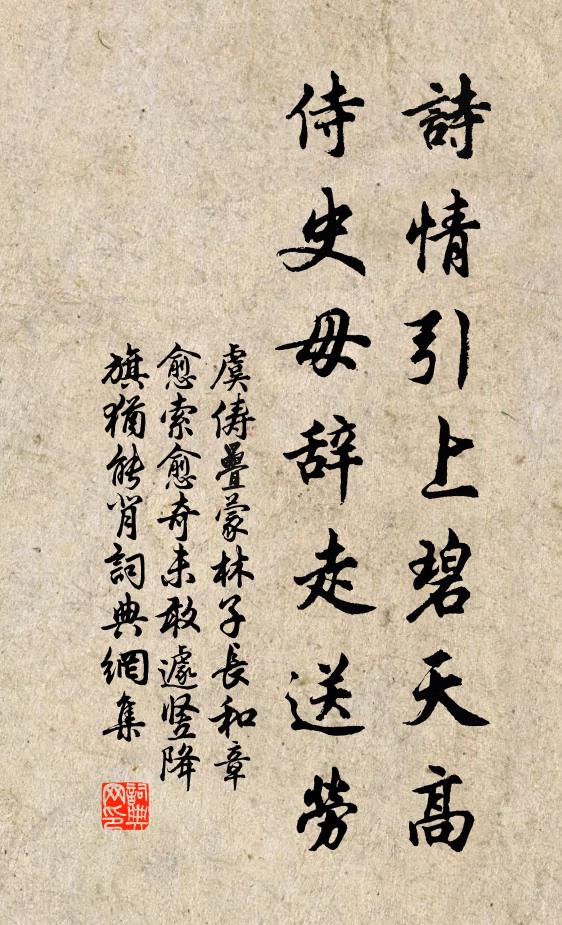 詩情引上碧天高
侍史毋辞走送勞
虞儔疊蒙林子長和章
愈索愈奇未敢遽竖降
旗猶能肖詞典網集
詞典网印